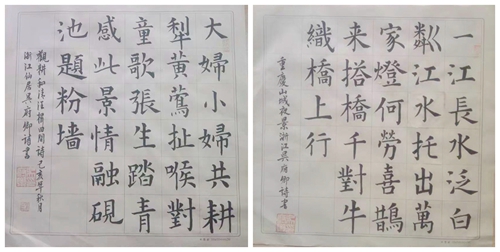 大婦小婦共耕
犁黄鶯扯喉對
童歌張生踏青
感此景情融硯
池題粉墙
觀耕 田間詩己亥年秋月
浙江仙居吳府卿詩書
一江長水泛白
粼江水托出萬
家燈何勞喜鵲
来搭橋千對牛
織橋上行
重慶山城夜景浙江吳府卿詩書